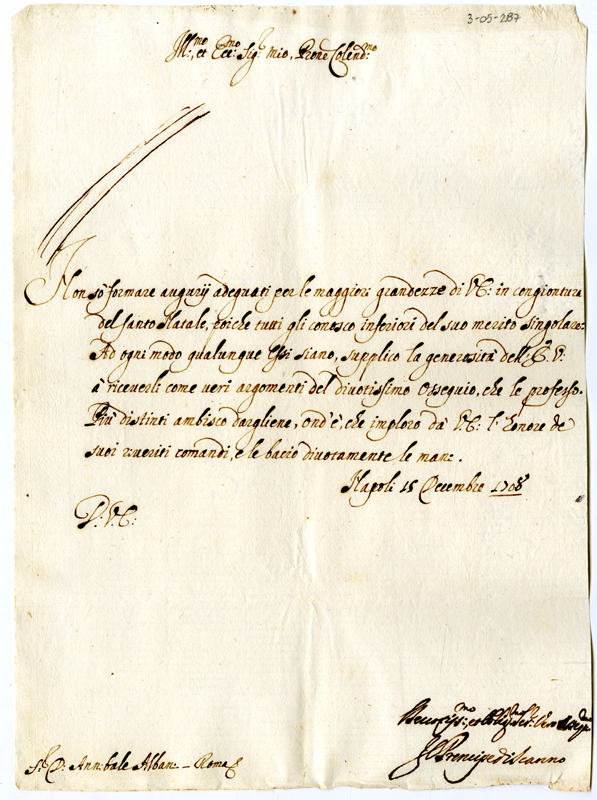 3-05-287
Ill:mo, et Ecc:mo Sig:r mio, Prone Colend:mo
Non sò formare augurij adequati per le maggiori grandezze di V.E: in congiontura
del santo Natale, poiche tutti gli conosco inferiori del suo merito singolare:
Ad ogni modo qualunque Essi siano, supplico la generosità dell'E. V:
à riceverli come veri argomenti del divotissimo Ossequio, che le professo.
Più distinti ambisco dargliene, ond'è, che imploro dà V.E: l'honore de
suoi riveriti comandi, e le bacio divotamente le mani.
Napoli 15 Decembre 1708
D: V.E:
Il Prencipe di Scanno
S:r D: Annibale Albani - Roma